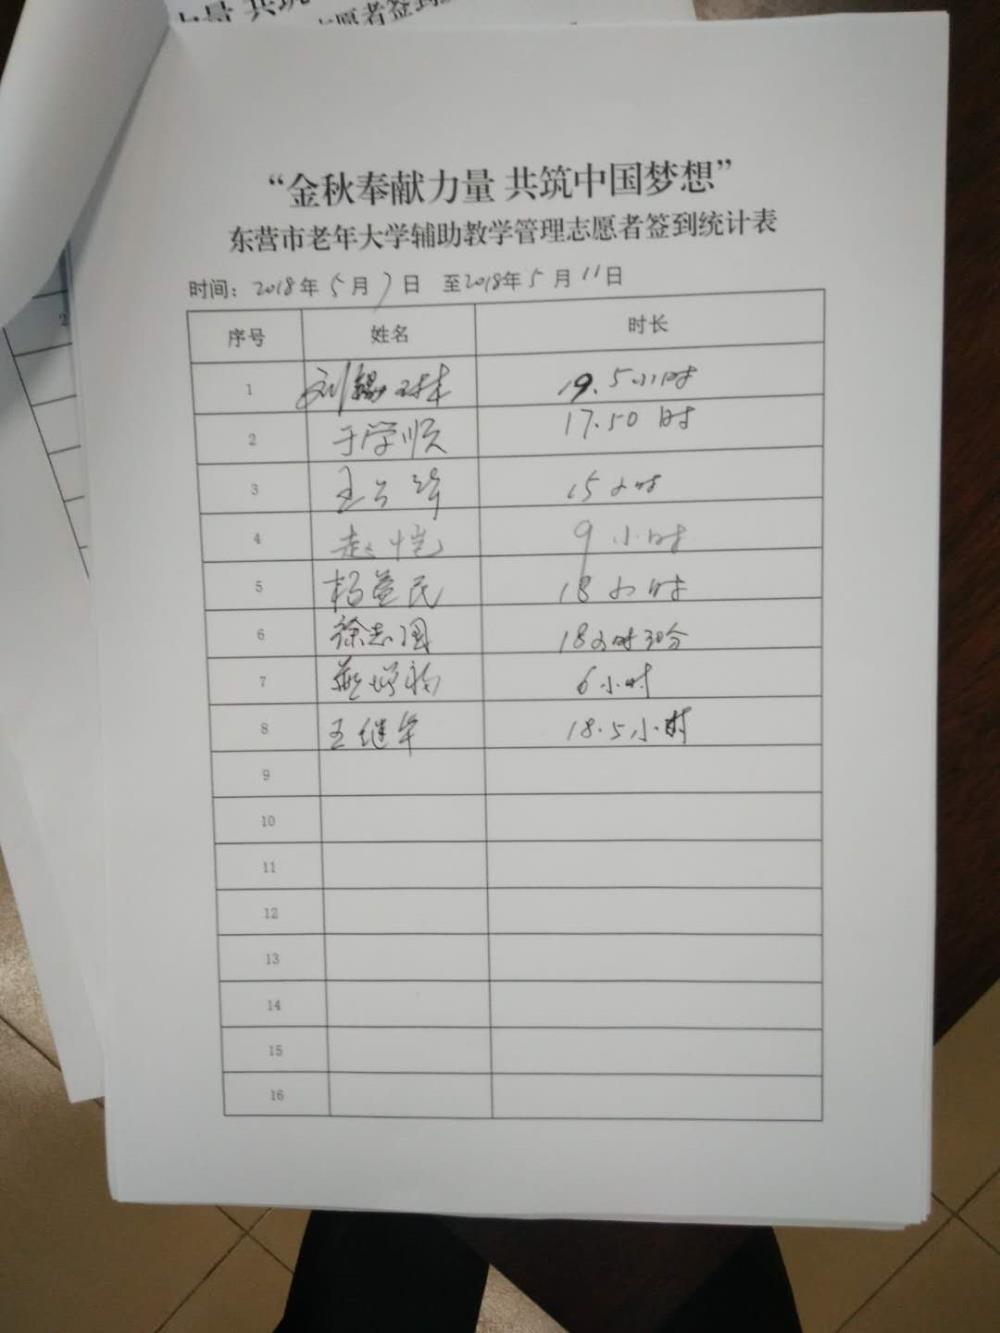 力量 共筑
志愿者签到
“金秋奉献力量 共筑中国梦想”
东营市老年大学辅助教学管理志愿者签到统计表
时间：2018年5月7日 至2018年5月11日
序号 姓名 时长
1 刘锡 19.5小时
2 于学顺 17.50时
3 王 15小时
4 赵恺 9小时
5 杨益民 18小时
6 徐志国 18小时30分
7 6小时
8 王继华 18.5小时
9
10
11
12
13
14
15
16
2